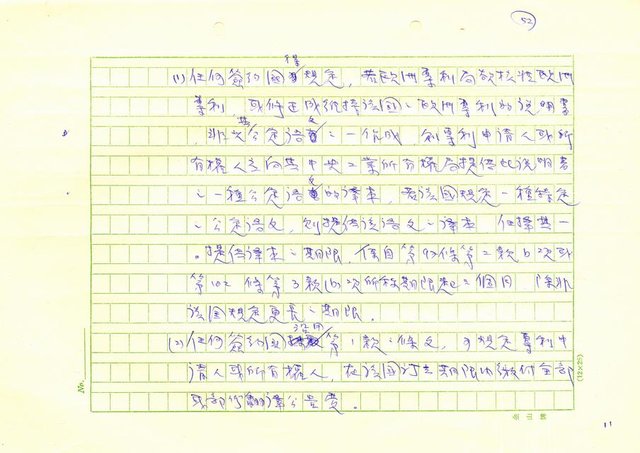 52
(1) 任何簽約國得規定,若歐洲專利局欲核准歐洲
專利 或修正或維持該國之歐洲專利的說明書
非其公定語文之一作成,則專利申請人或所
有權人應向其中央工業所有權局提供此說明書
之一種公定語文的譯本,若該國規定一種特定
之公定語文,則提供該語文之譯本
提供譯本之期限,係自第97條第2款b次或
第102條第3款(b)次所稱期限起2個月,除非
該國規定更長之期限。
(2) 任何簽約國沿用第1款之條文,可規定專利申
請人或所有權人,在該國訂定期限內繳付全部
或部份翻譯公告費。
No.
(12×25)
11